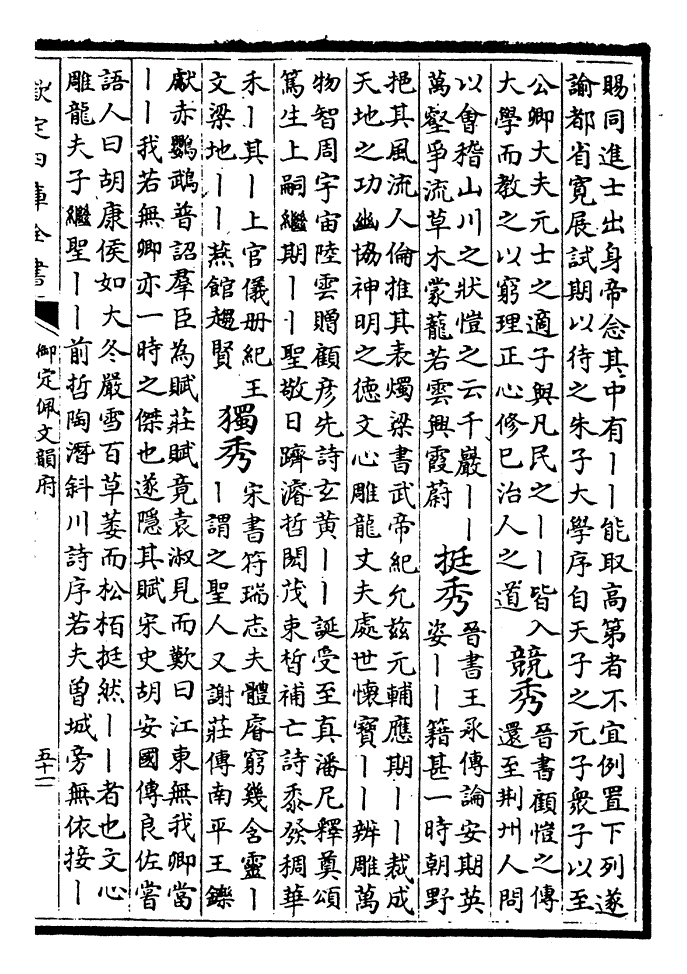 賜同進士出身帝念其中有丨丨能取高第者不宜例置下列遂
諭都省寬展試期以待之朱子大學序自天子之元子衆子以至
公卿大夫元士之適子與凡民之丨丨皆入
大學而教之以窮理正心修已治人之道
競秀
晉書顧愷之傳
還至荆州人問
以會稽山川之狀愷之云千巖丨丨
萬壑爭流草木蒙蘢若雲興霞蔚
挺秀
晉書王承傳論安期英
姿丨丨籍甚一時朝野
挹其風流人倫推其表燭梁書武帝紀允兹元輔應期丨丨裁成
天地之功幽協神明之徳文心雕龍丈夫處世懷寶丨丨辨雕萬
物智周宇宙陸雲贈顧彦先詩玄黄丨丨誕受至真潘尼釋奠頌
篤生上嗣繼期丨丨聖敬日躋濬哲閎茂束晳補亡詩黍發稠華
禾丨其丨上官儀册紀王
文梁地丨丨燕館趨賢
獨秀
宋書符瑞志夫體睿窮幾含靈丨
丨謂之聖人又謝莊傳南平王鑠
獻赤鸚鵡普詔羣臣為賦莊賦竟袁淑見而歎曰江東無我卿當
丨丨我若無卿亦一時之傑也遂隱其賦宋史胡安國傳良佐嘗
語人曰胡康侯如大冬嚴雪百草萎而松栢挺然丨丨者也文心
雕龍夫子繼聖丨丨前哲陶潛斜川詩序若夫曽城旁無依接丨
欽定四庫全書
御定佩文韻府